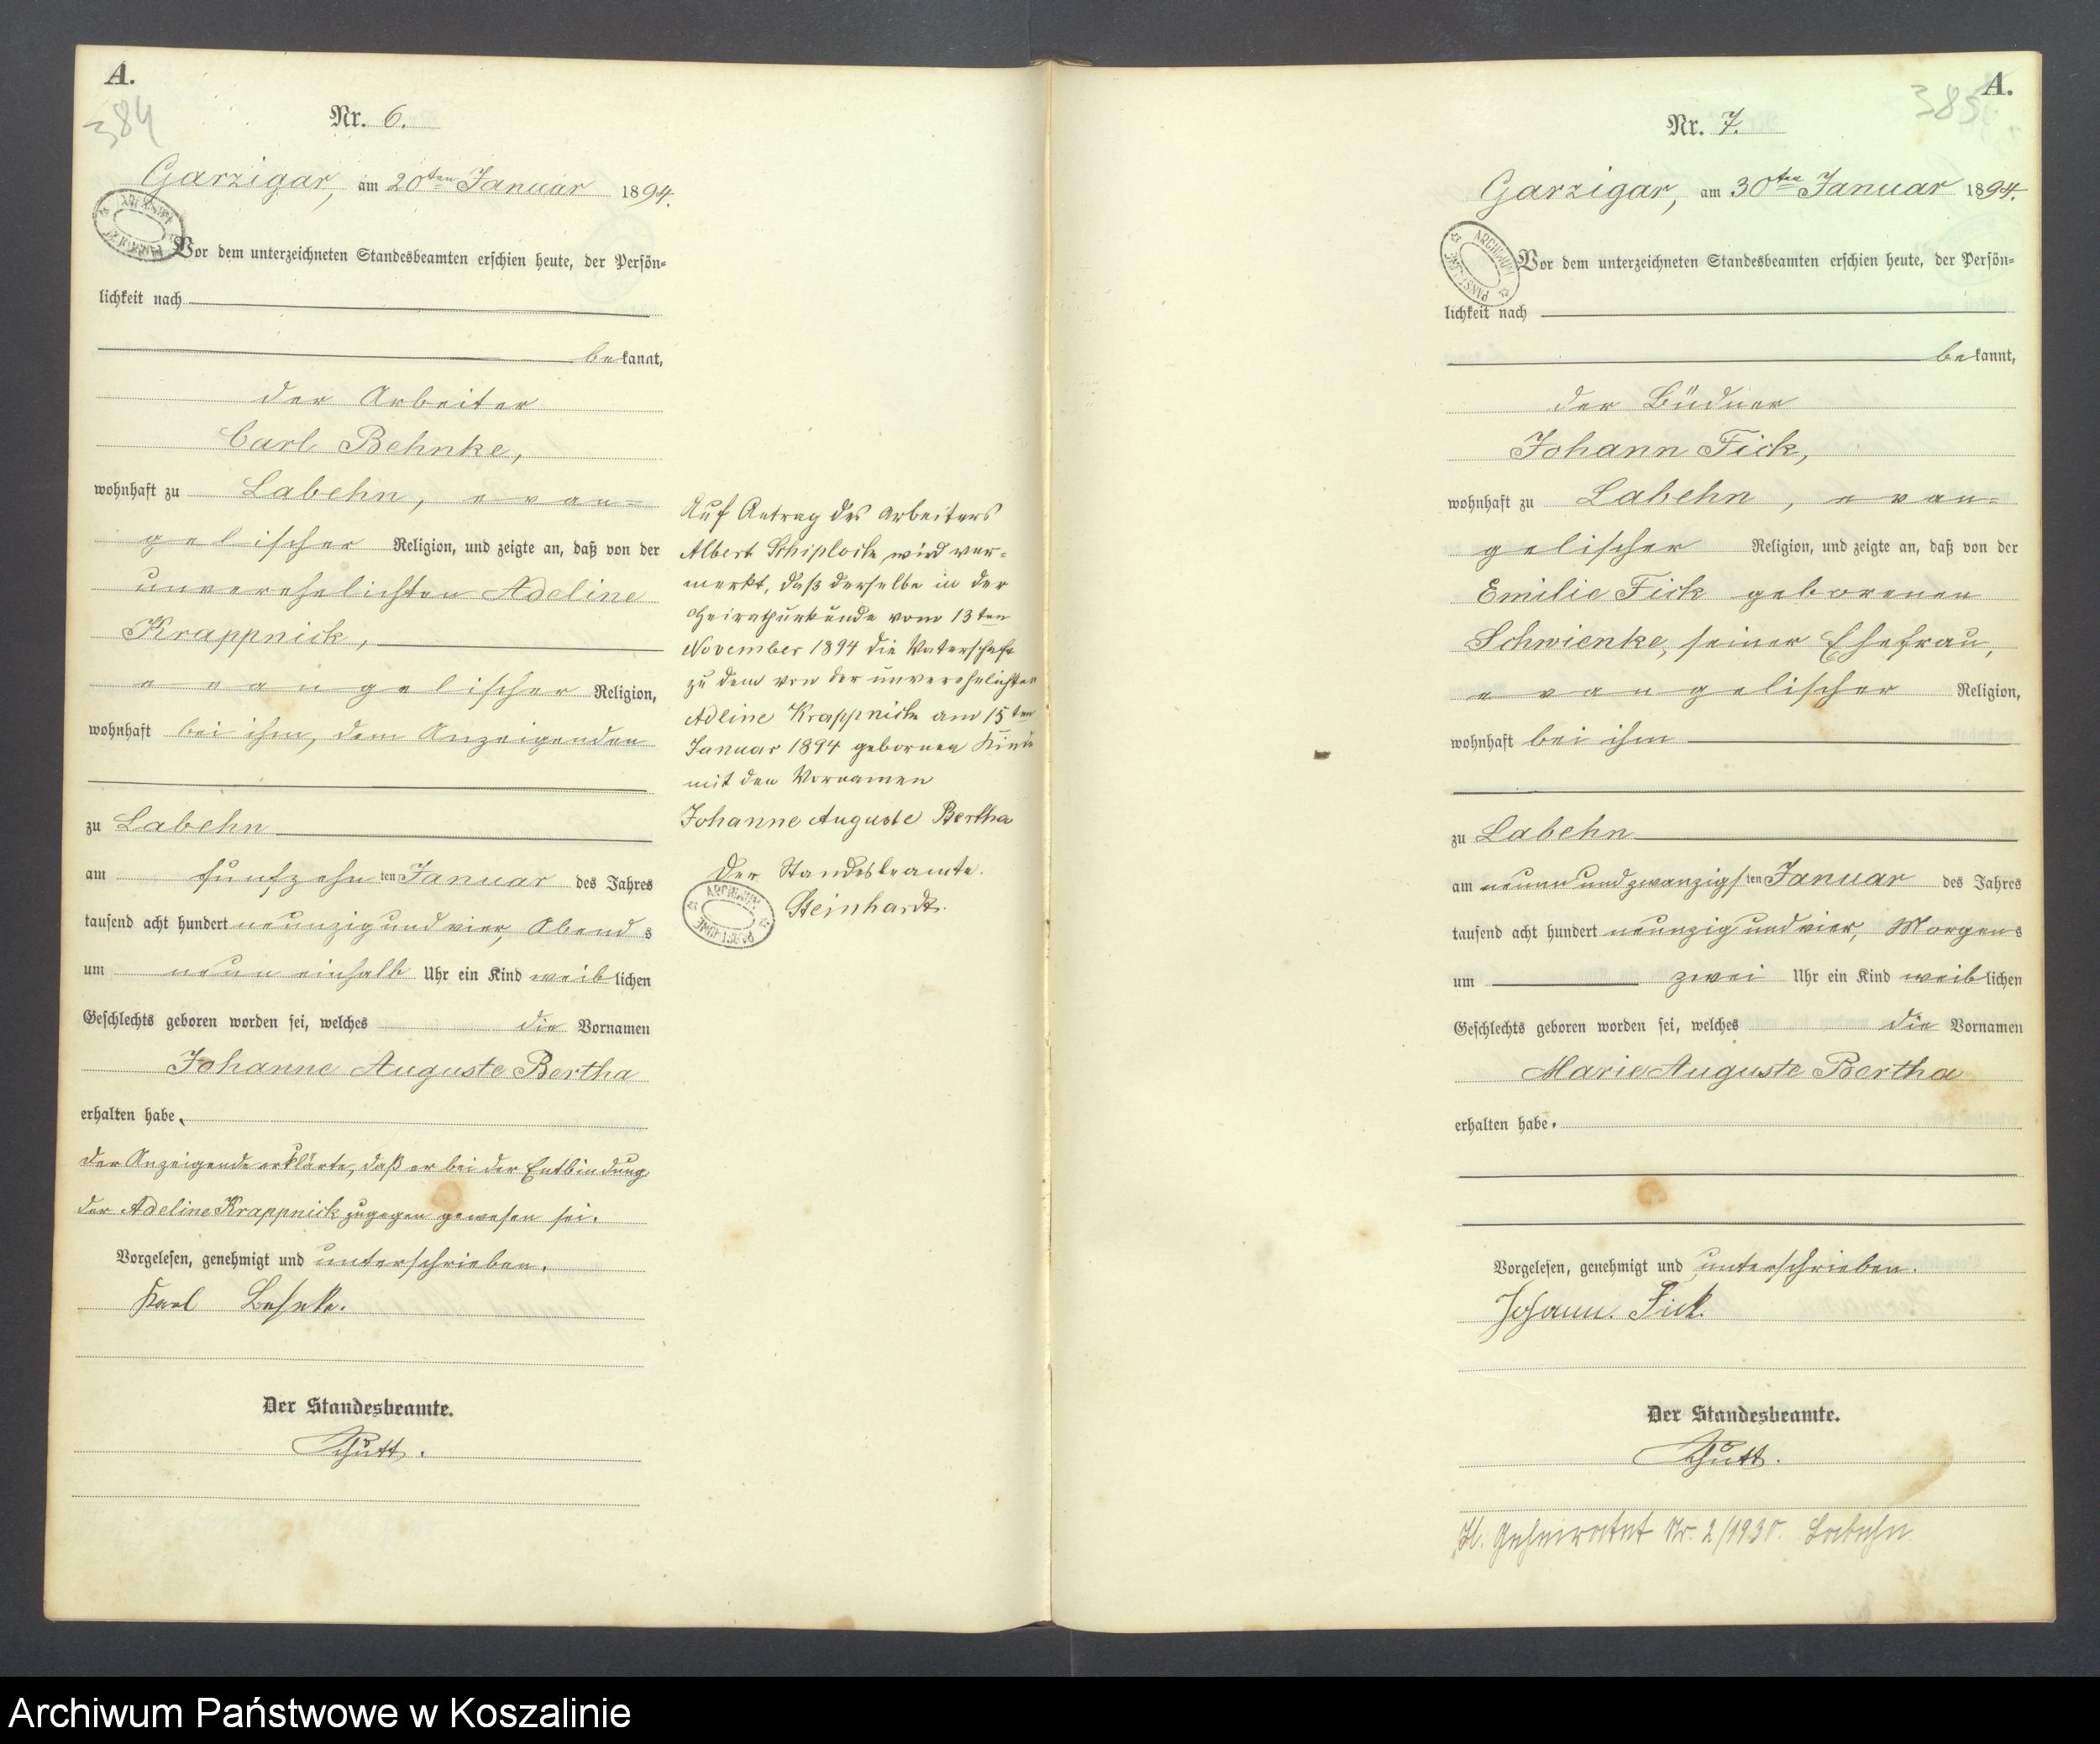 A.
384
Nr. 6.
Garzigar, am 20ten Januar 1894.
Vor dem unterzeichneten Standesbeamten erschien heute, der Persön=
lichkeit nach
bekannt,
der Arbeiter
Carl Behnke,
wohnhaft zu Labehn, evan=
gelischer Religion, und zeigte an, daß von der
unverehelichten Adeline
Krappnick,
evangelischer Religion,
wohnhaft bei ihm, dem Anzeigenden
zu Labehn
am fünfzehnten Januar des Jahres
tausend acht hundert neunzig und vier, Abends
um neun einhalb Uhr ein Kind weiblichen
Geschlechts geboren worden sei, welches die Vornamen
Johanne Auguste Bertha
erhalten habe.
Der Anzeigende erklärte, daß er bei der Entbindung
der Adeline Krappnick zugegen gewesen sei.
Vorgelesen, genehmigt und unterschrieben.
Karl Behnke.
Der Standesbeamte.
Schütt.
Auf Antrag des Arbeiters
Albert Schiplock, wird ver=
merkt, daß derselbe in der
Heirathsurkunde vom 13ten
November 1894 die Vaterschaft
zu dem von der unverehelichten
Adline Krappnick am 15ten
Januar 1894 gebornen Kinde
mit den Vornamen
Johanne Auguste Bertha
Der Standesbeamte.
Steinhardt.
A.
385
Nr. 7.
Garzigar, am 30ten Januar 1894.
ARCHIWUM PAŃSTWOWE
Vor dem unterzeichneten Standesbeamten erschien heute, der Persön=
lichkeit nach
bekannt,
der Büdner
Johann Fick,
wohnhaft zu Labehn, evan=
gelischer Religion, und zeigte an, daß von der
Emilie Fick geborenen
Schwienke, seiner Ehefrau,
evangelischer Religion,
wohnhaft bei ihm
zu Labehn
am neunundzwanzigsten Januar des Jahres
tausend acht hundert neunzig und vier, Morgens
um zwei Uhr ein Kind weiblichen
Geschlechts geboren worden sei, welches die Vornamen
Marie Auguste Bertha
erhalten habe.
Vorgelesen, genehmigt und unterschrieben.
Johann. Fick.
Der Standesbeamte.
Schütt.
Geheiratet Nr. 2/1930. Labehn
Archiwum Państwowe w Koszalinie